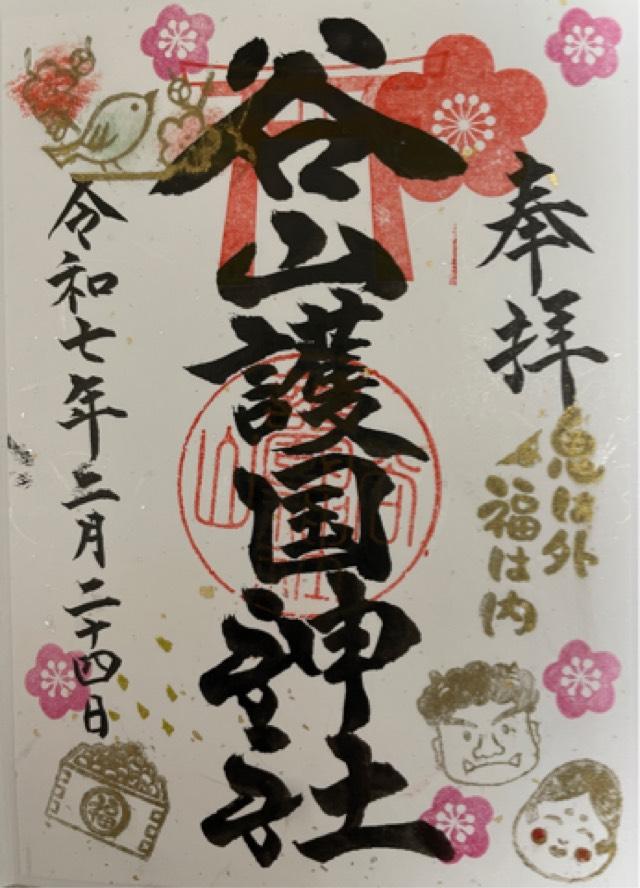 奉拝
鬼は外
福は内
谷山護国神社
令和七年二月二十四日
福